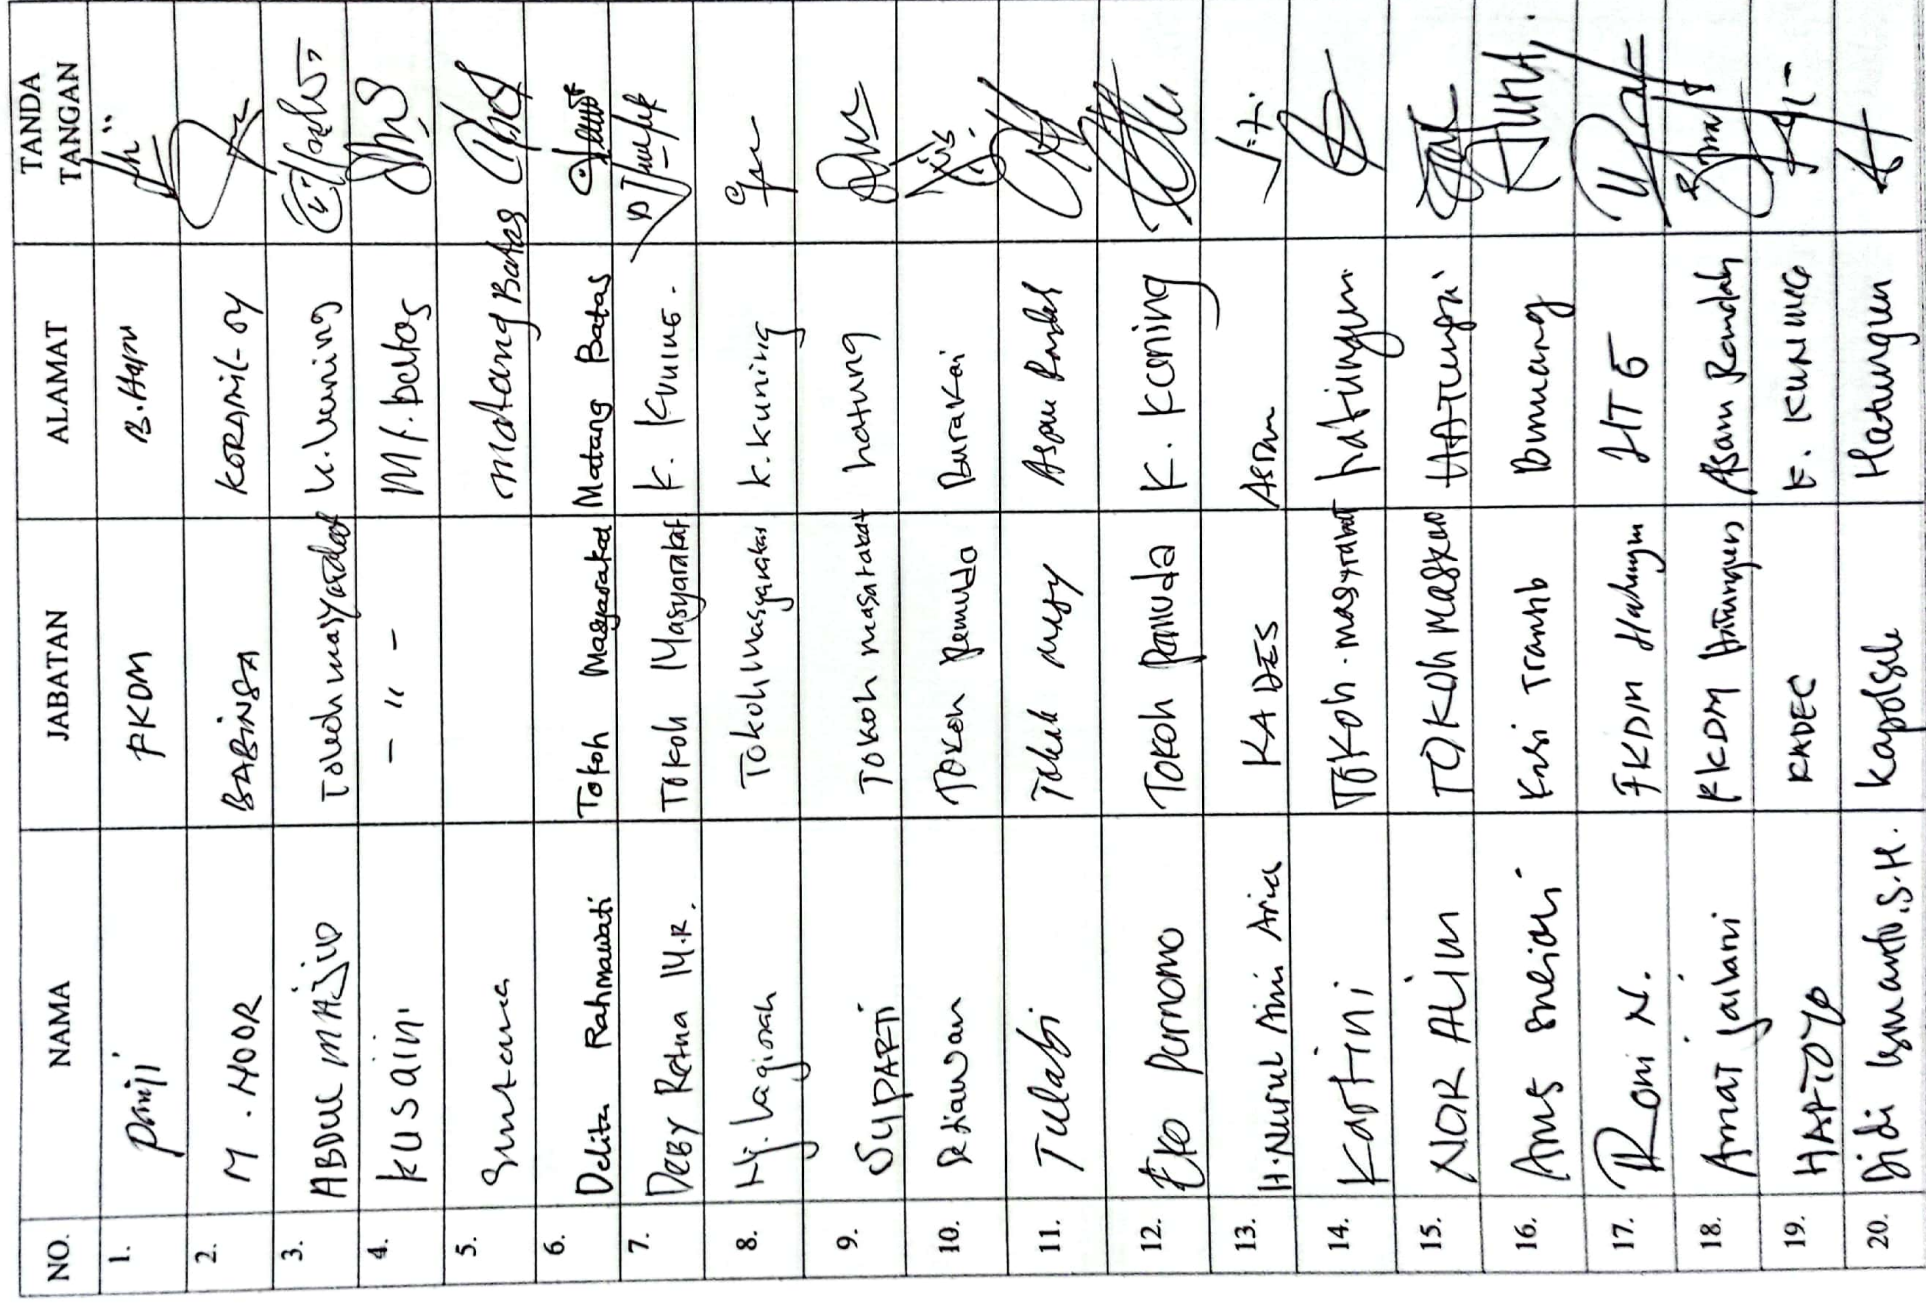 NO. NAMA JABATAN ALAMAT TANDA TANGAN
1. Panji FKDM B.Hapu
2. M. NOOR BABINSA KORAMIL-04
3. ABDUL MAJID Tokoh masyarakat K.kuning
4. KUSAini - " - Mt. batas
5. Matang Batas
6. Delita Rahmawati Tokoh Masyarakat Matang Batas
7. DEBY Retna M.R. Tokoh Masyarakat K. KUNING.
8. Hj. Lagisah Tokoh Masyarakat K. Kuning
9. SUPARTI Tokoh masarakat hatung
10. Setiawan Tokoh Pemuda Burakai
11. Tulabi Tokoh masy Asam Randah
12. Eko purnomo Tokoh Pamuda K. Koning
13. H. Nurul Aini Aria KADES
14. Kartini Tokoh masyrakat hatungun
15. NOR ALIM TOKOH
16. Kasi Trantib Binuang
17. Roni N. FKDM Hatungun
18. Amat Jailani FKDM Hatungun Asam Randah
19. HARTOYO KADES K. KUNING
20. Didi Ismanto, S.H. Kapolsek Hatungun